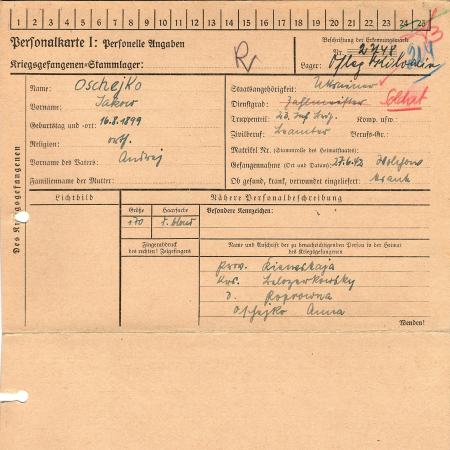 1 2 3 4 5 6 7 8 9 10 11 12 13 14 15 16 17 18 19 20 21 22 23 24 25
Personalkarte I: Personelle Angaben
Kriegsgefangenen-Stammlager:
Beschriftung der Erkennungsmarke
Nr. 2748
Lager: Oflag
Des Kriegsgefangenen
Name: Oschejko
Vorname: Jakow
Geburtstag und -ort: 16.8.1899
Religion: orth.
Vorname des Vaters: Andrej
Familienname der Mutter:
Staatsangehörigkeit: Ukrainer
Dienstgrad: Zahlmeister Soldat
Truppenteil: Komp. usw.:
Zivilberuf: Beamter Berufs-Gr.:
Matrikel Nr. (Stammrolle des Heimatstaates):
Gefangennahme (Ort und Datum): 27.6.42
Ob gesund, krank, verwundet eingeliefert: krank
Lichtbild
Nähere Personalbeschreibung
Größe
Haarfarbe
Besondere Kennzeichen:
170
Fingerabdruck
des rechten! Zeigefingers
Name und Anschrift der zu benachrichtigenden Person in der Heimat
des Kriegsgefangenen
Prov. Kiewskaja
D. Poprowna
Oschejko Anna
Wenden!